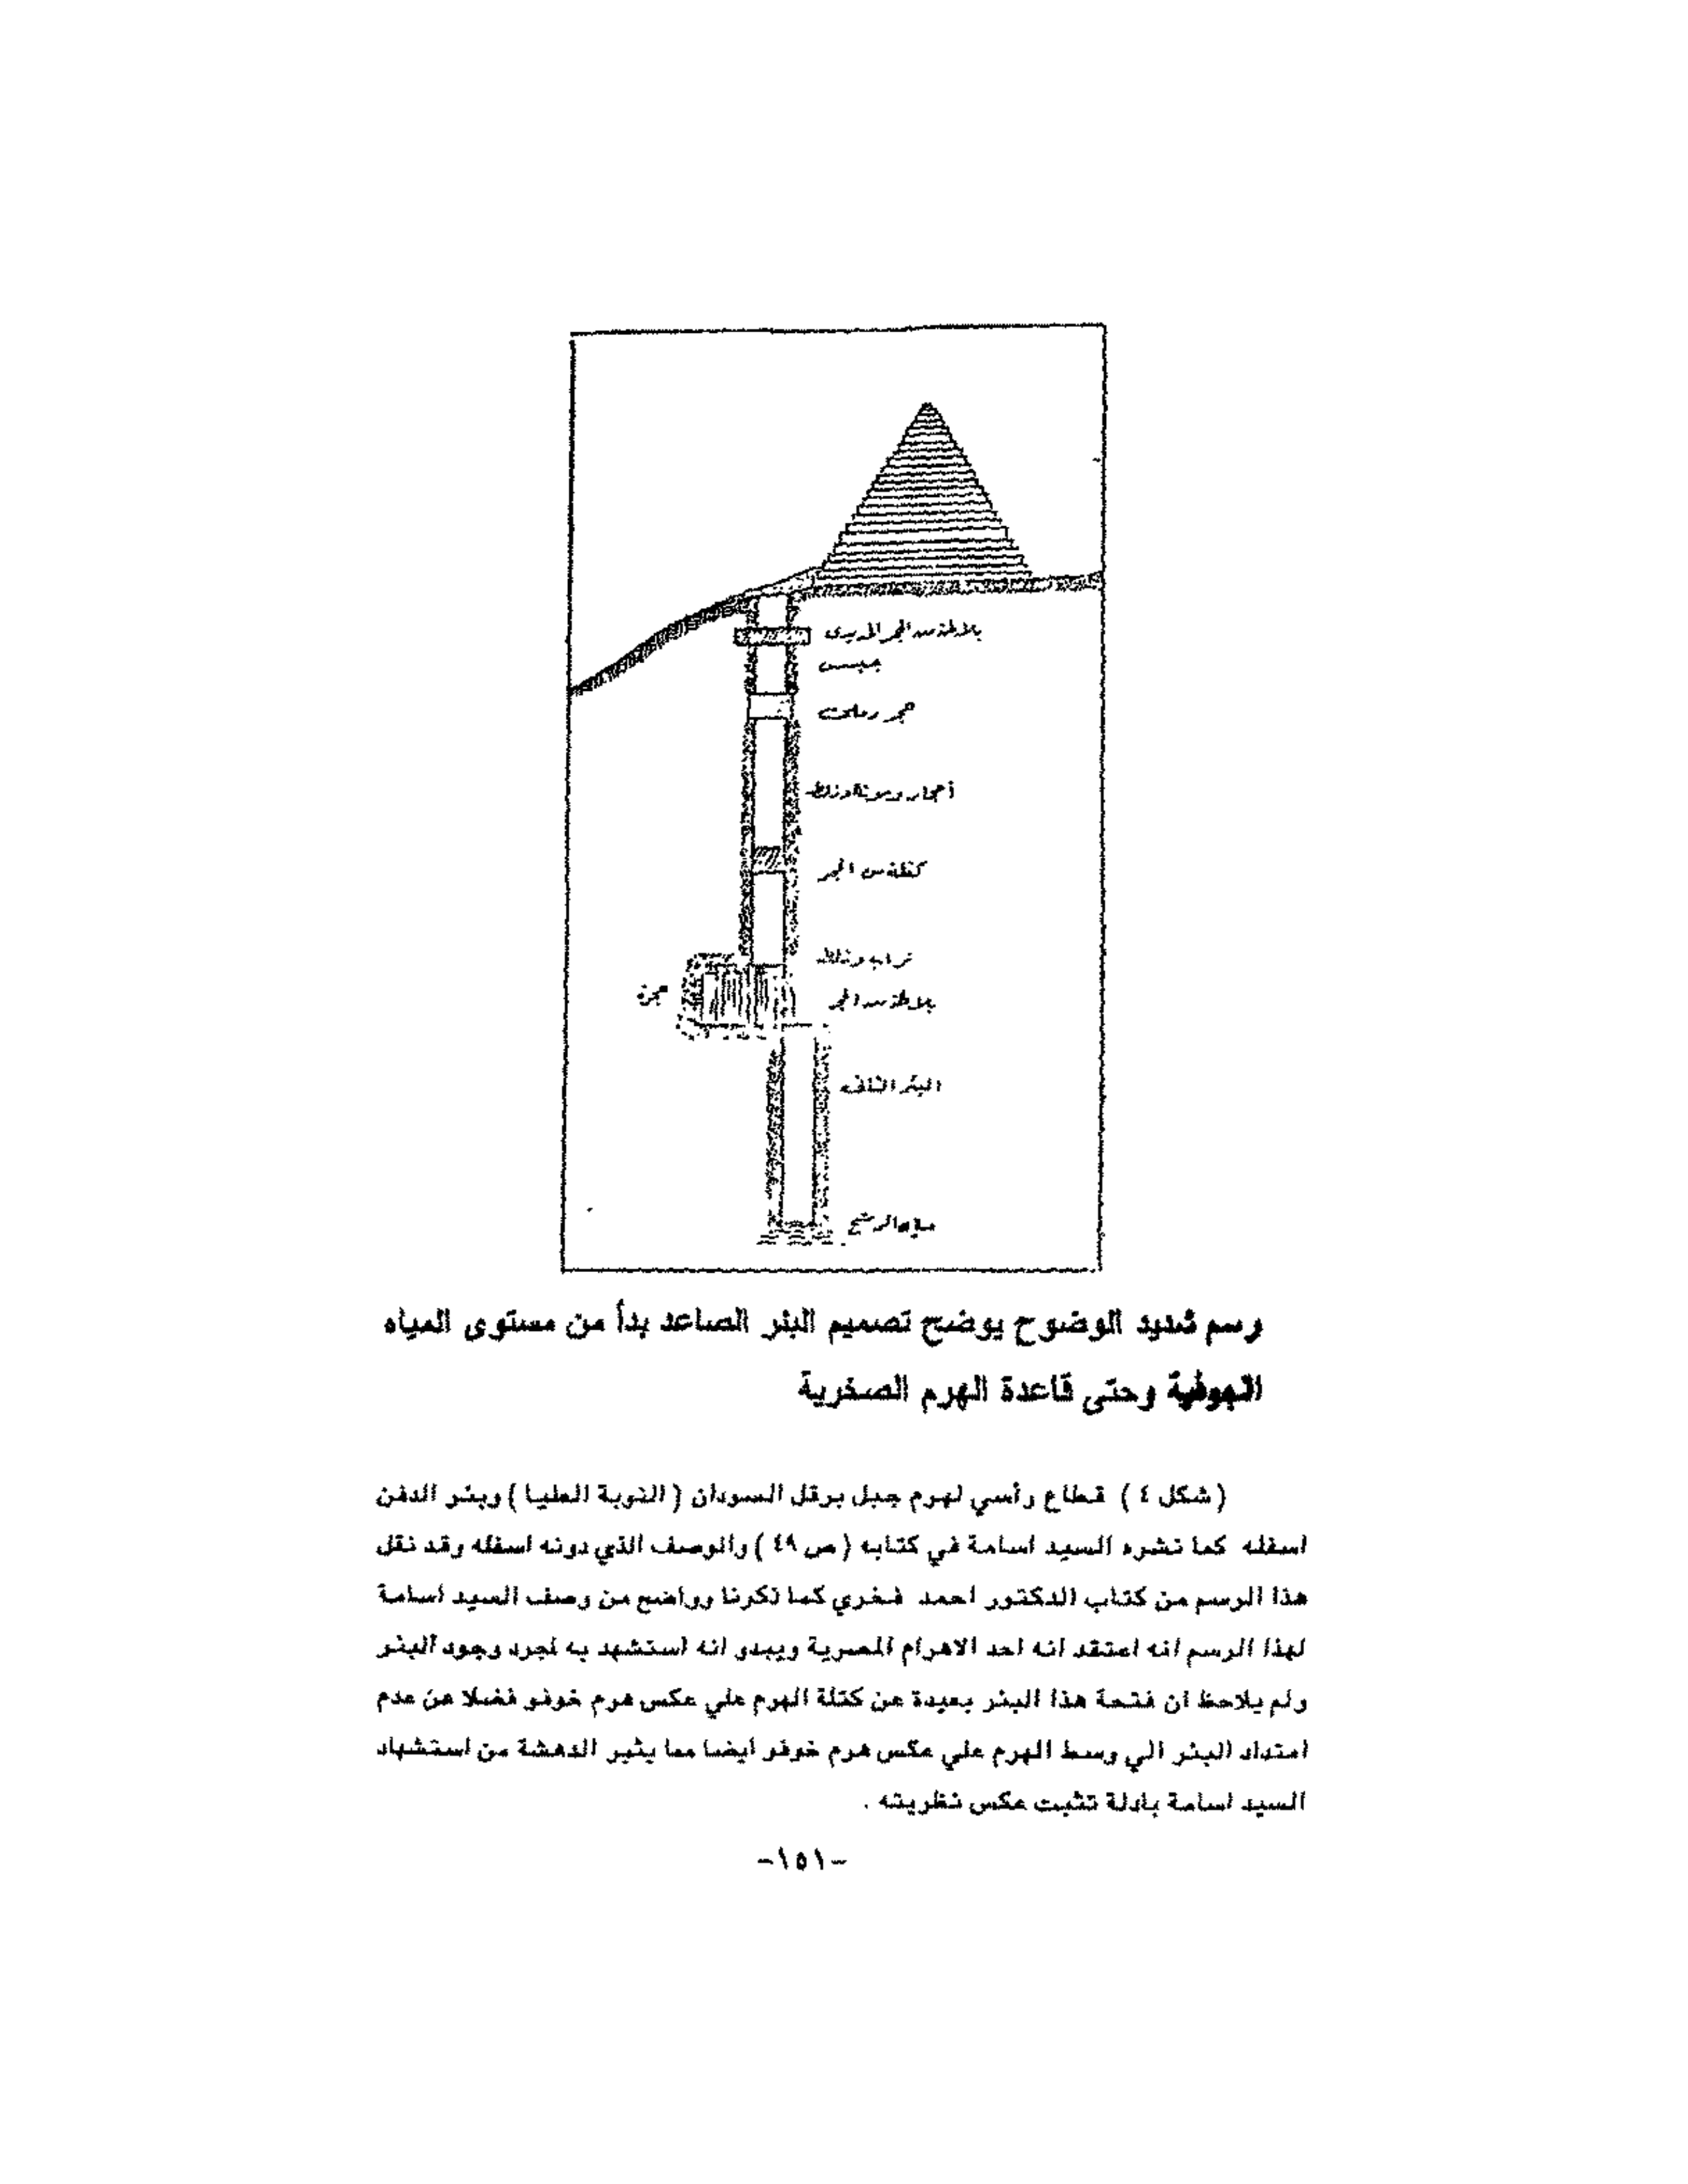 بلاطة من الحجر الجيرى
جبس
حجر رملى
أحجار ومونة وزلط
كتلة من الحجر
تراب وزلط
حجرة
بلاطة من الحجر
البئر الثانى
مياه الرشح
رسم شديد الوضوح يوضح تصميم البئر الصاعد بدأ من مستوى المياه
الجوفية وحتى قاعدة الهرم الصخرية
( شكل ٤ ) قطاع رأسي لهرم جبل برقل السودان ( النوبة العليا ) وبئر الدفن
اسفله كما نشره السيد اسامة في كتابه ( ص ٤٩ ) والوصف الذي دونه اسفله وقد نقل
هذا الرسم من كتاب الدكتور احمد فخري كما ذكرنا وواضح من وصف السيد اسامة
لهذا الرسم انه اعتقد انه احد الاهرام المصرية ويبدو انه استشهد به لمجرد وجود البئر
ولم يلاحظ ان فتحة هذا البئر بعيدة عن كتلة الهرم علي عكس هرم خوفو فضلا عن عدم
امتداد البئر الي وسط الهرم علي عكس هرم خوفو ايضا مما يثير الدهشة من استشهاد
السيد اسامة بادلة تثبت عكس نظريته .
-١٥١-